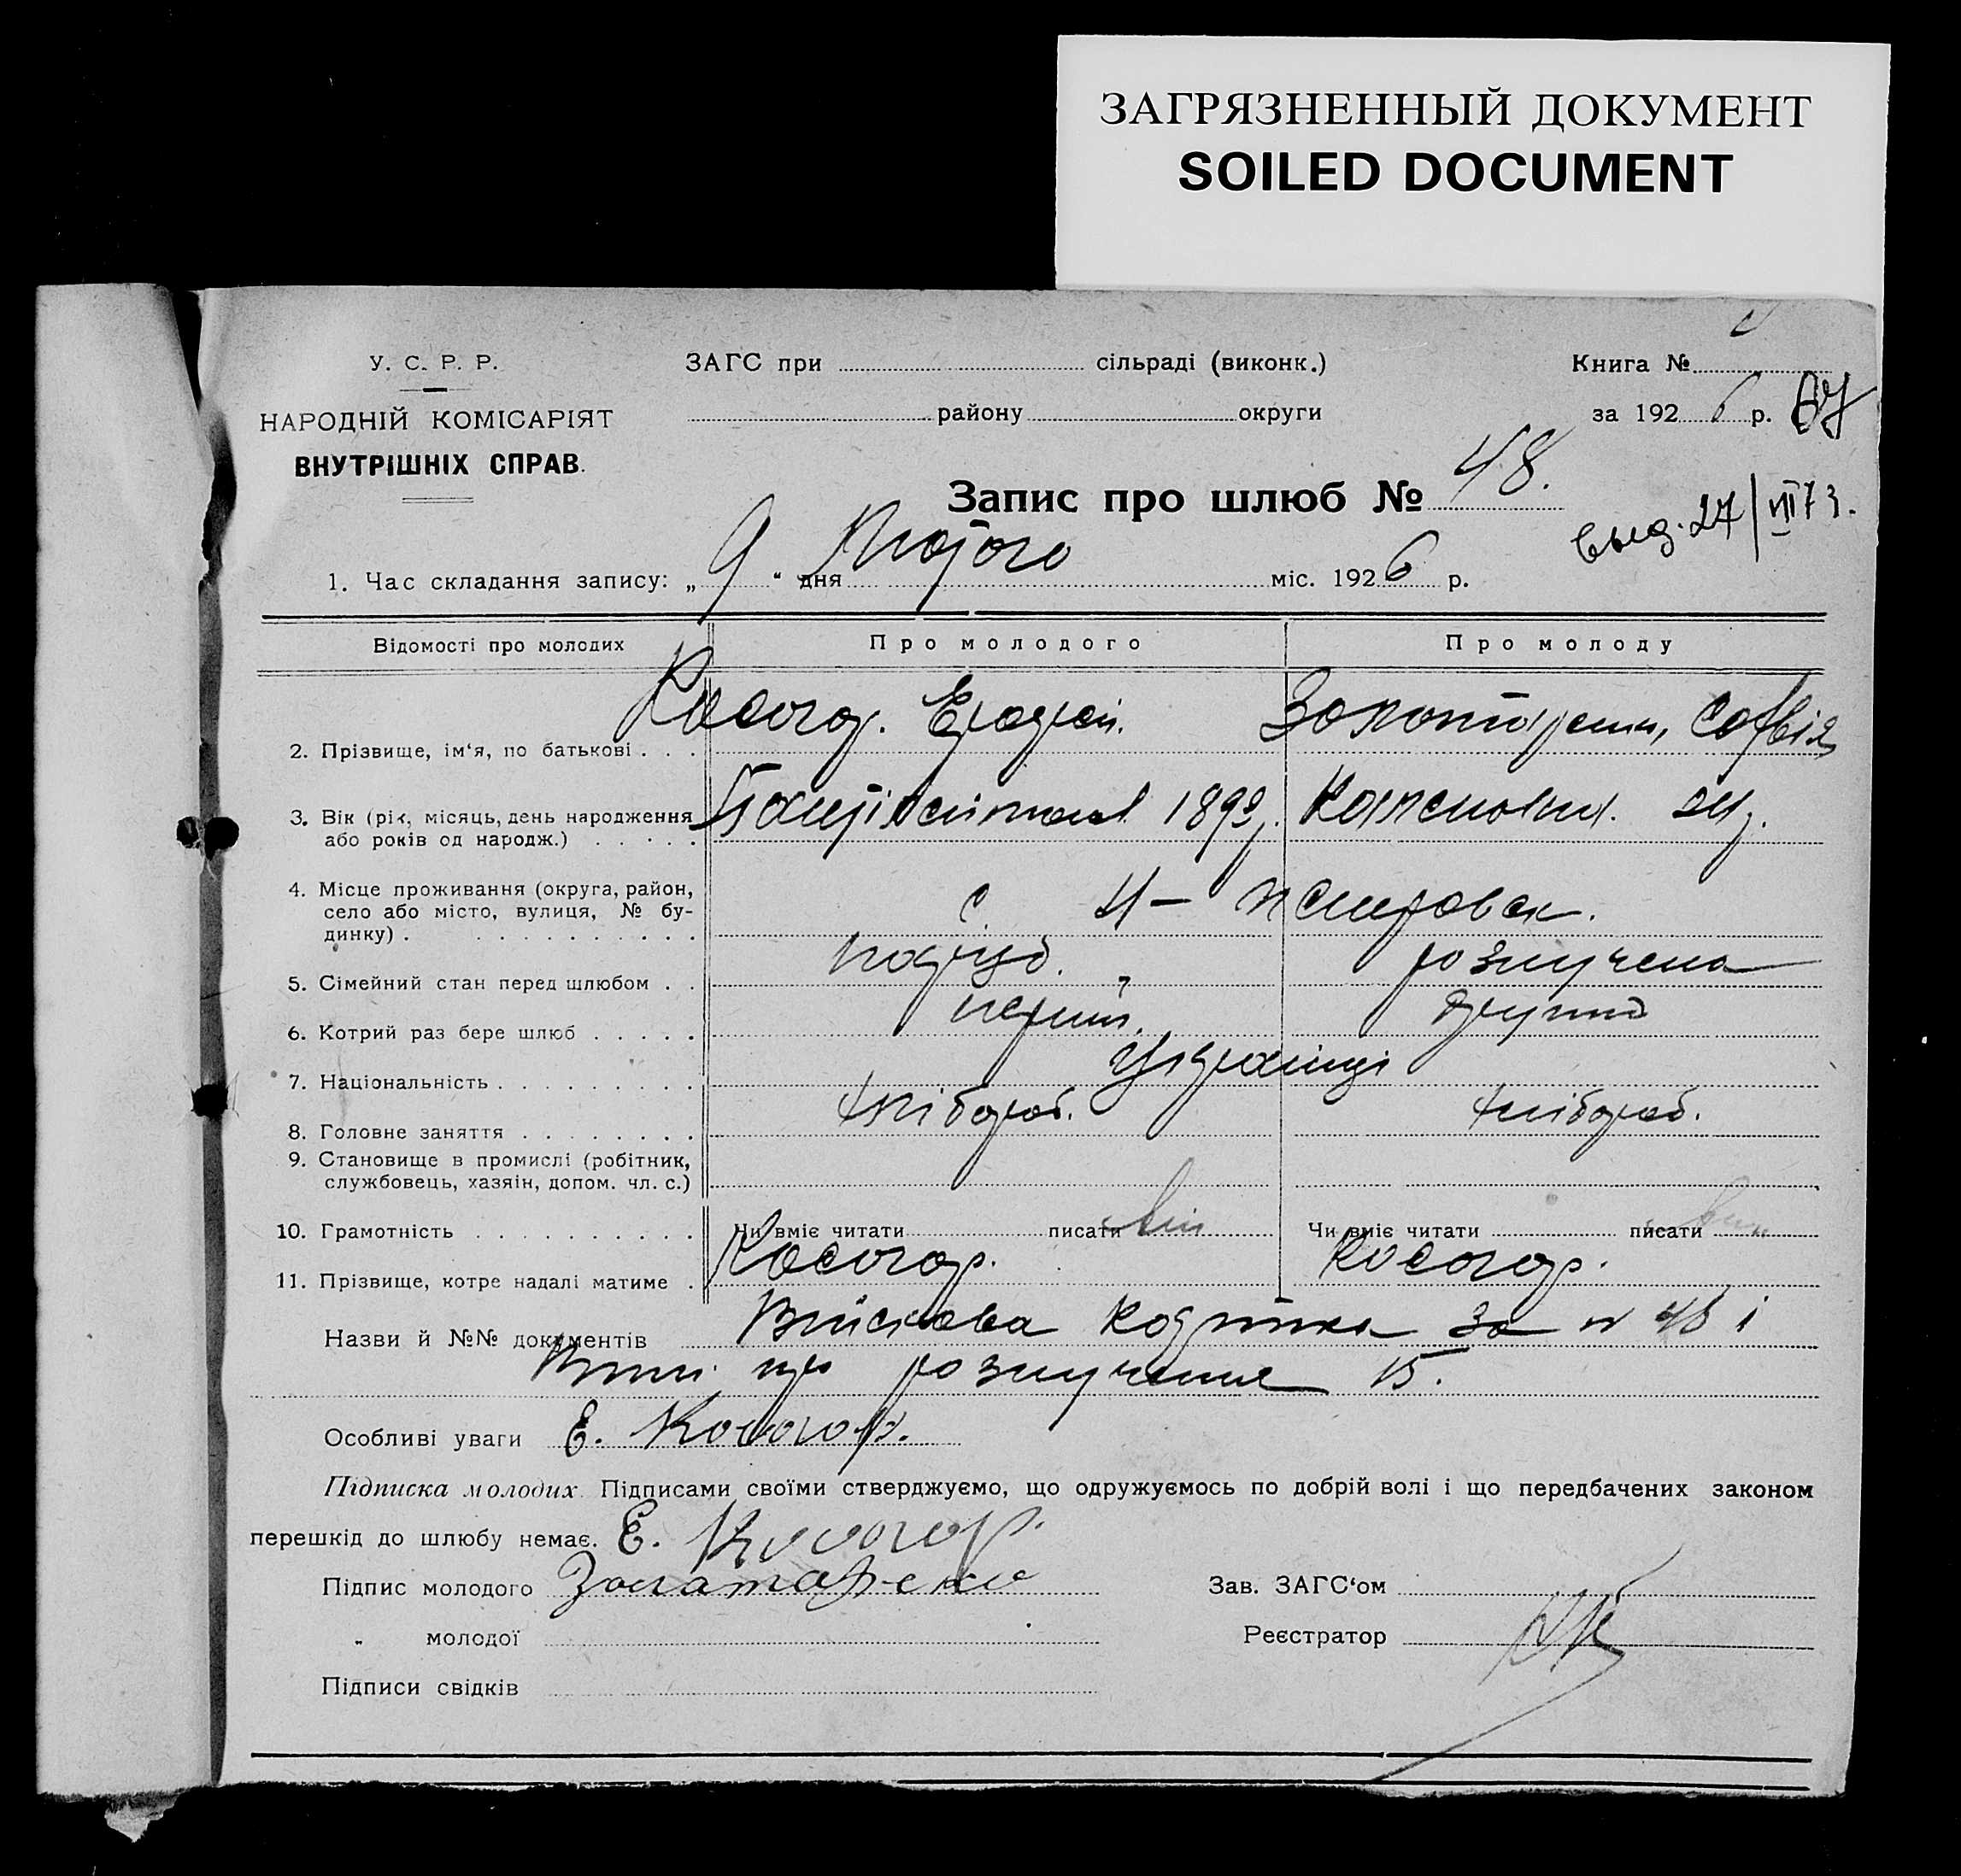 ЗАГРЯЗНЕННЫЙ ДОКУМЕНТ
SOILED DOCUMENT
У. С. Р. Р.
НАРОДНІЙ КОМІСАРІЯТ
ВНУТРІШНІХ СПРАВ.
ЗАГС при сільраді (виконк.)
району округи
Книга №
за 1926 р. 67
Запис про шлюб № 48.
выд. 27/VIII 73.
1. Час складання запису: „9" дня Лютого міс. 1926 р.
Відомості про молодих Про молодого Про молоду
2. Прізвище, ім'я, по батькові . . . Косогор. Золотаренк, Софія
3. Вік (рік, місяць, день народження
або років од народж.) . . . . .
4. Місце проживання (округа, район,
село або місто, вулиця, № бу-
динку) . . . . . . . . . . . с.
5. Сімейний стан перед шлюбом . . розлучена
6. Котрий раз бере шлюб . . . . . перший.
7. Національність . . . . . . . . . Українці
8. Головне заняття . . . . . . . . хлібороб. хлібороб.
9. Становище в промислі (робітник,
службовець, хазяін, допом. чл. с.)
10. Грамотність . . . . . . . . . . Чи вміє читати писати Чи вміє читати писати
11. Прізвище, котре надалі матиме . Косогор. Косогор.
Назви й №№ документів Військова за № 48 і
про розлучення 15.
Особливі уваги Е. Косогор.
Підписка молодих. Підписами своїми стверджуємо, що одружуємось по добрій волі і що передбачених законом
перешкід до шлюбу немає. Е. Косогор.
Підпис молодого Золатаренко Зав. ЗАГС'ом
„ молодої Реєстратор
Підписи свідків